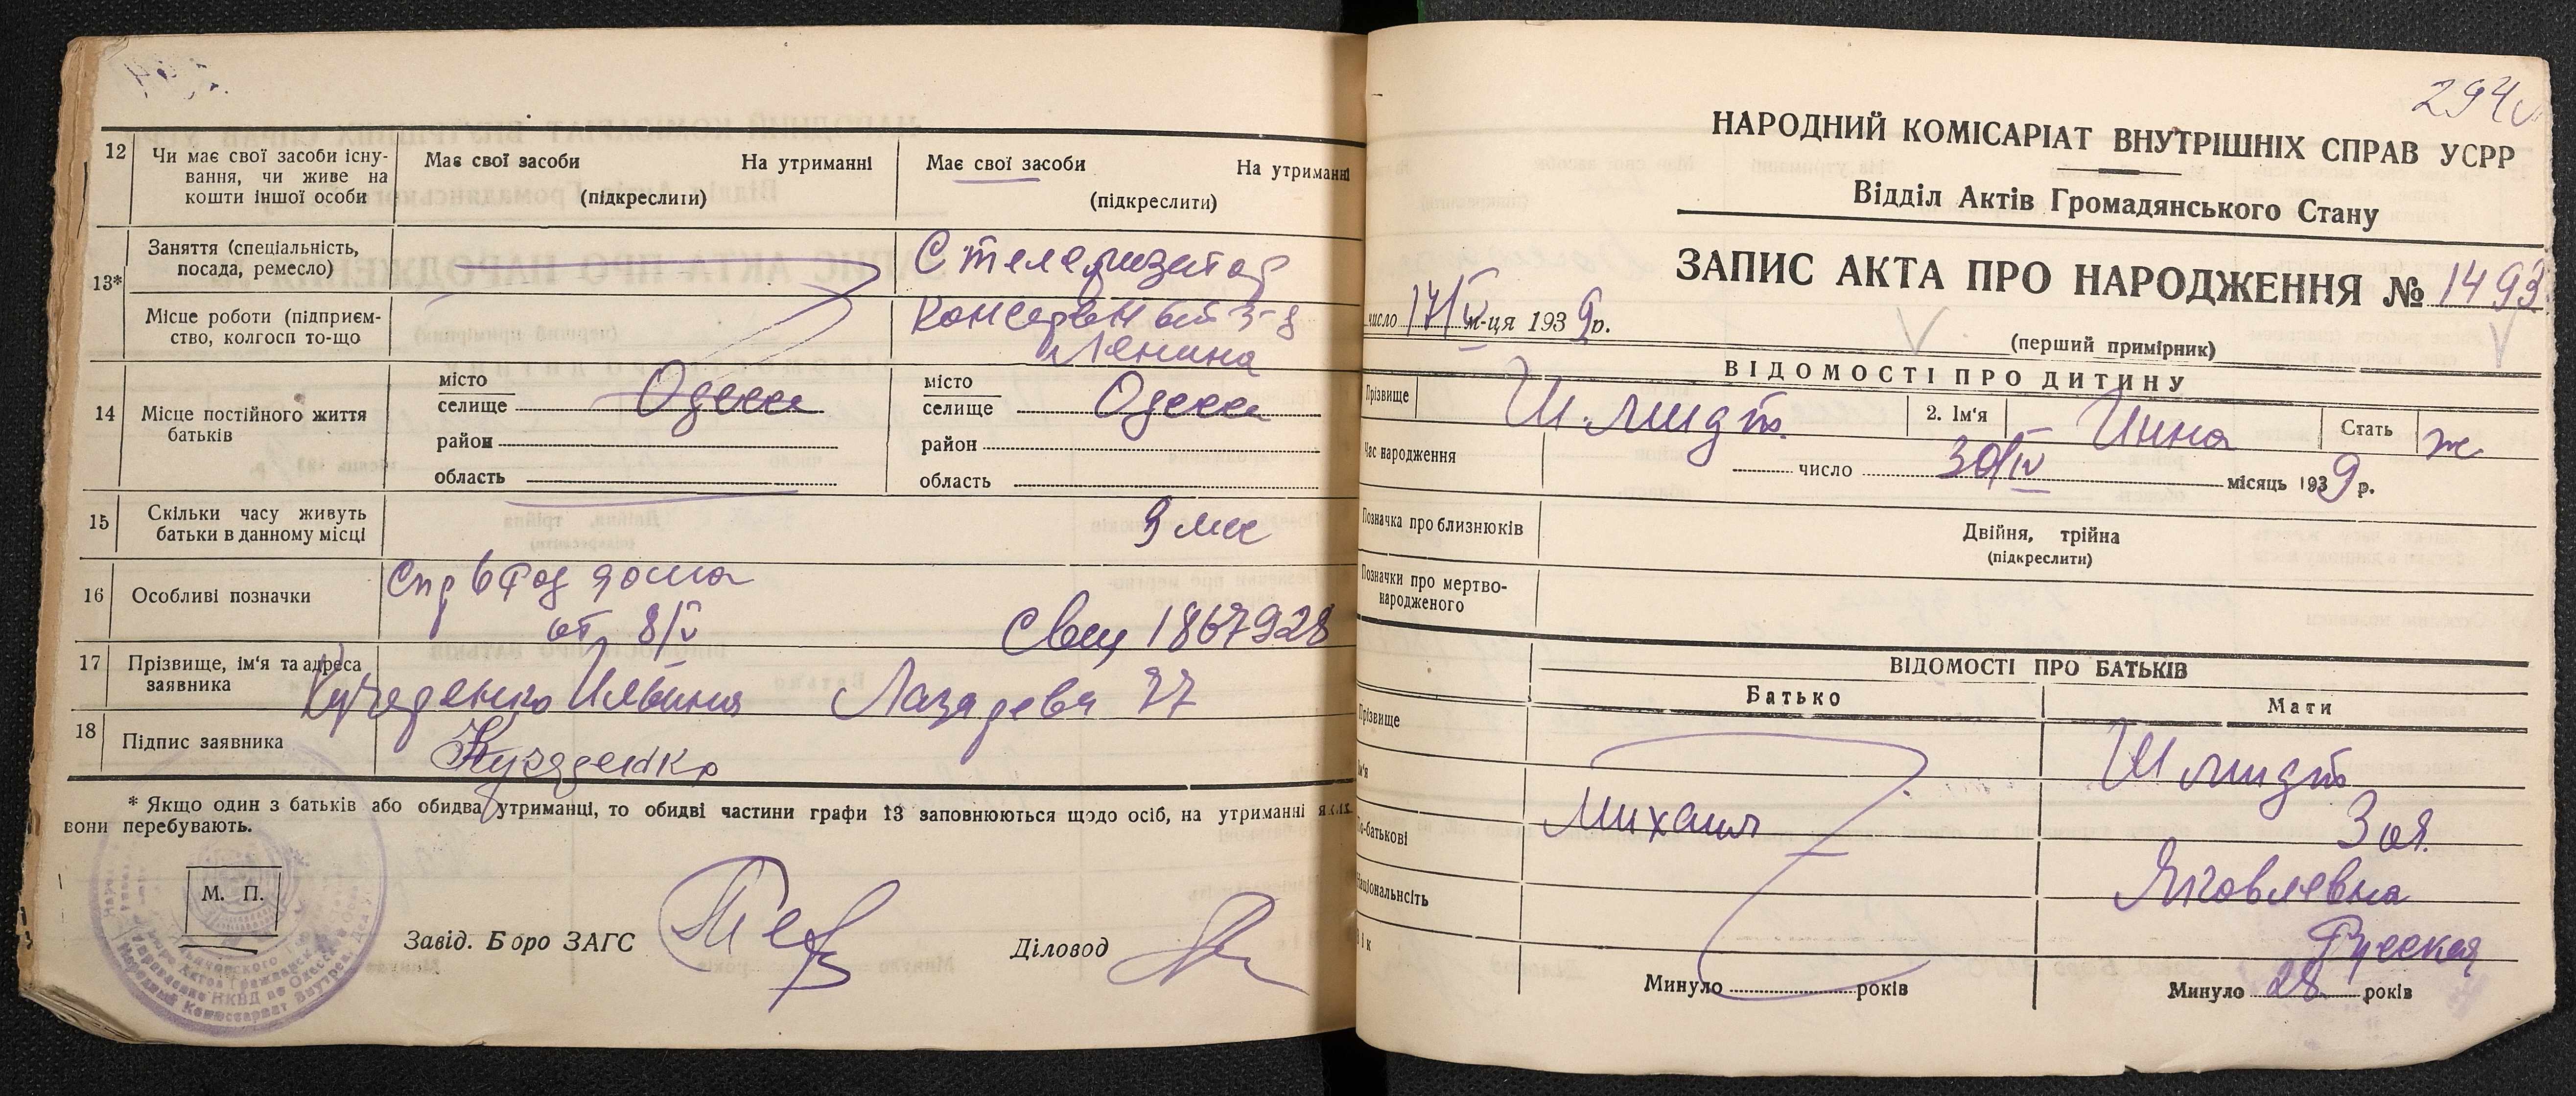 12
Чи має свої засоби існу-
вання, чи живе на
кошти іншої особи
Має свої засоби
На утриманні
(підкреслити)
Має свої засоби
На утриманні
(підкреслити)
13*
Заняття (спеціальність,
посада, ремесло)
Стелелизатор
Місце роботи (підприєм-
ство, колгосп то-що
Консервный з-д
Ленина
14
Місце постійного життя
батьків
місто
селище Одесса
район
область
місто
селище Одесса
район
область
15
Скільки часу живуть
батьки в данному місці
9 мес
16
Особливі позначки
Спр 6 род дома
от 8/V
Свид 1867928
17
Прізвище, ім'я та адреса
заявника
Кучеренко Ильинич Лазарева 77
18
Підпис заявника
Кучеренко
* Якщо один з батьків або обидва утриманці, то обидві частини графи 13 заповнюються щодо осіб, на утриманні яких
вони перебувають.
М. П.
Завід. Бюро ЗАГС
Діловод
294
НАРОДНИЙ КОМІСАРІАТ ВНУТРІШНІХ СПРАВ УСРР
Відділ Актів Громадянського Стану
ЗАПИС АКТА ПРО НАРОДЖЕННЯ № 1493
число 17/V м-ця 1939р.
(перший примірник)
ВІДОМОСТІ ПРО ДИТИНУ
Прізвище
Шмидт
2. Ім'я
Инна
Стать
ж
Час народження
число 30/IV місяць 1939 р.
Позначка про близнюків
Двійня, трійна
(підкреслити)
Позначки про мертво-
народженого
ВІДОМОСТІ ПРО БАТЬКІВ
Батько
Мати
Прізвище
Шмидт
Ім'я
Михаил
Зоя
По-батькові
Яковлевна
Національність
Русская
Вік
Минуло років
Минуло 28 років